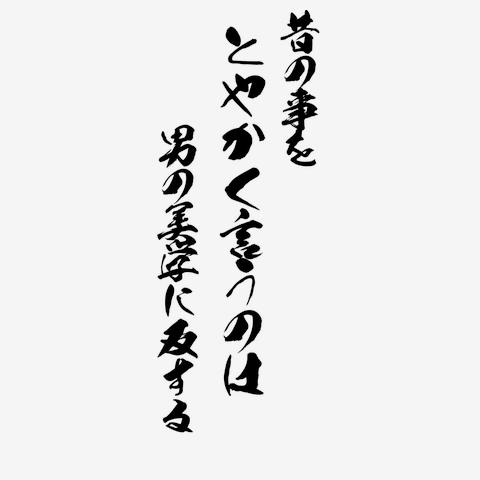 昔の事を
とやかく言うのは
男の美学に反する